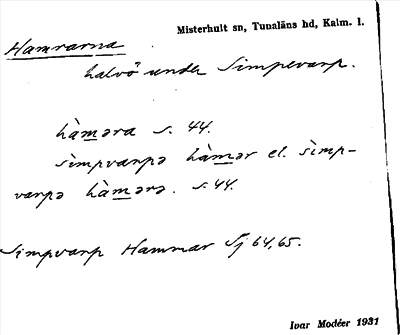 Misterhult sn, Tunaläns hd, Kalm. l.
Hamrarna
halvö under Simpevarp.
hàməra s. 44.
sìmpvarpə hàmər el. sìmp-
varpə hàmərə. s. 44.
Simpvarp Hammar Sj 64, 65.
Ivar Modéer 1931